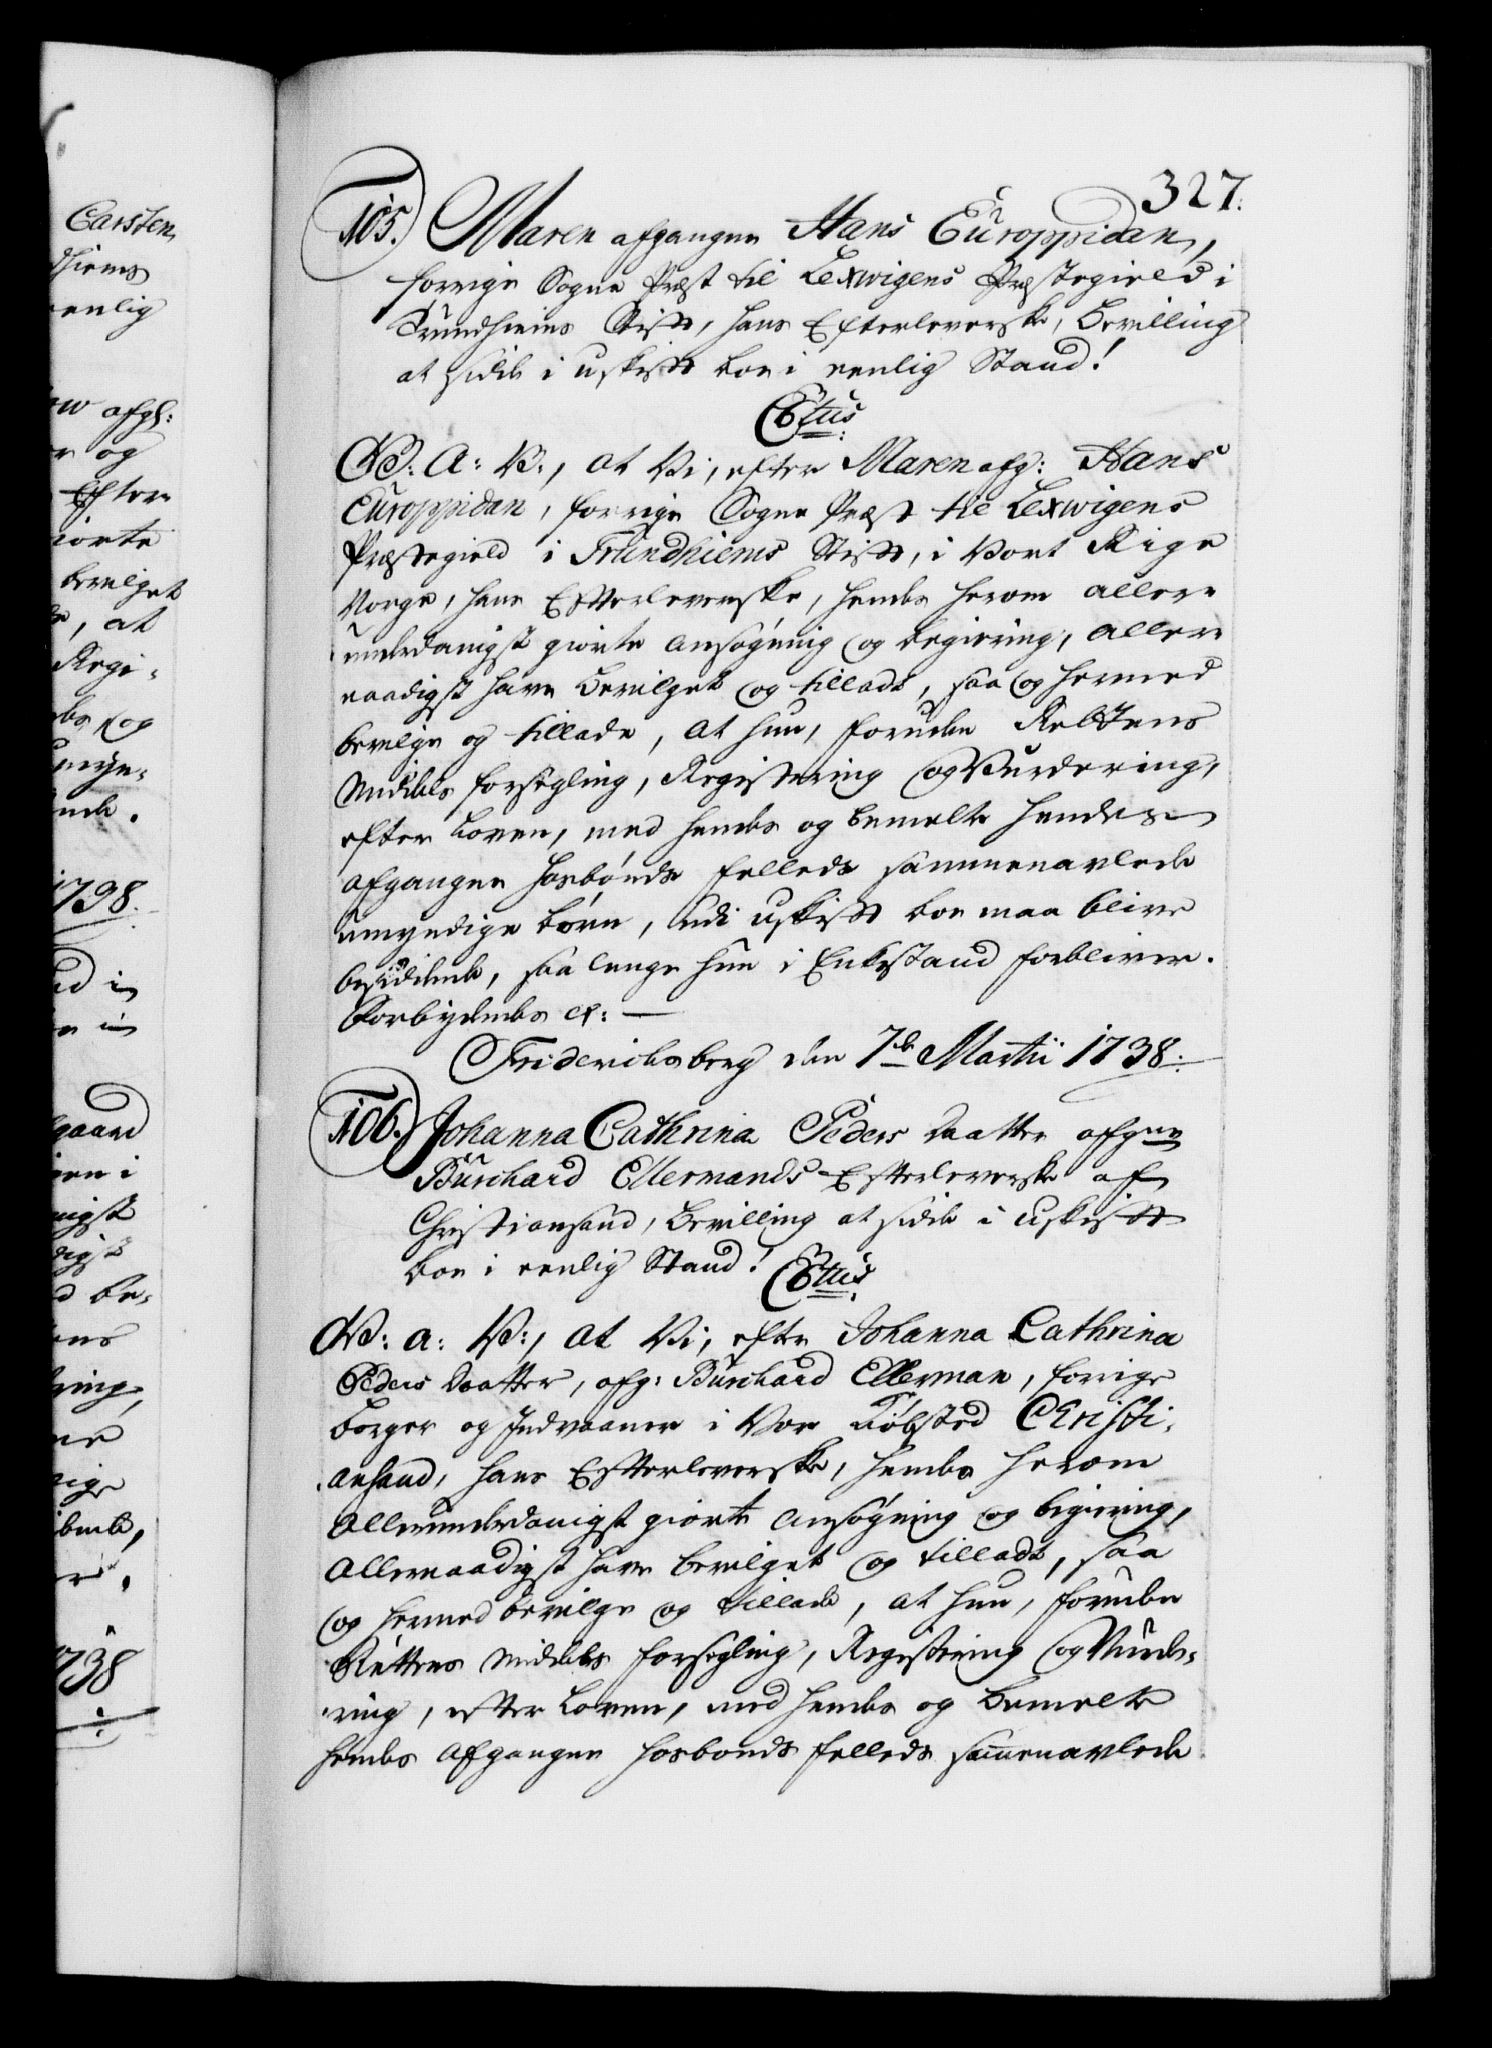 Carsten
dhiems
enlig
afgl:
og
Efter
giorte
bevilget
, at
Regi-
og
1738.
gaard
en i
nigst
digst
d be-
ens
ring,
ige
1738
327.
105. Maren afgangne Hans Europpidan,
forrige Sogne Præst til Lexwigens Præstegield i
Trundhiems Stift, hans Efterleverske, Bevilling
at sidde i uskift boe i eenlig Stand!
C6tus
W: A: V:, at Vi, efter Maren afg: Hans
Europpidan, forrige Sogne Præst til Lexwigens
Præstegield i Trundhiems Stift, i Vort Rige
Norge, hans Efterleverske, hendes herom aller-
underdanigst giorte ansøgning og begiering, aller-
naadigst have bevilget og tilladt, saa og hermed
bevilge og tillade, at hun, foruden Rettens
Middels forsegling, Registering og Vurdering,
efter Loven, med hendes og bemelte hendes
afgangne Hosbonds felleds sammenavlede
umyndige børn, udi uskift boe maa blive
besiddende, saa længe hun i Enkestand forbliver.
Forbydendes &:
Friderichsberg den 7de Martii 1738.
106. Johanna Cathrina Peders daatter afgne
Burchard Ellermands Efterleverske af
Christiansand, bevilling at sidde i uskift
boe i eenlig Stand! C6tus
W: a: V:, at Vi, efter Johanna Cathrina
Peders daatter, afg: Burchard Ellerman, forrige
borger og Indvaaner i Vor Kiøbsted Christi-
ansand, hans Efterleverske, hendes herom
allerunderdanigst giorte ansøgning og begiering,
allernaadigst have bevilget og tilladt, saa
og hermed bevilge og tillade, at hun, foruden
Rettens Middels forsegling, Registering og Vurde-
ring, efter Loven, med hendes og bemelte
hendes afgangne Hosbonds felleds sammenavlede